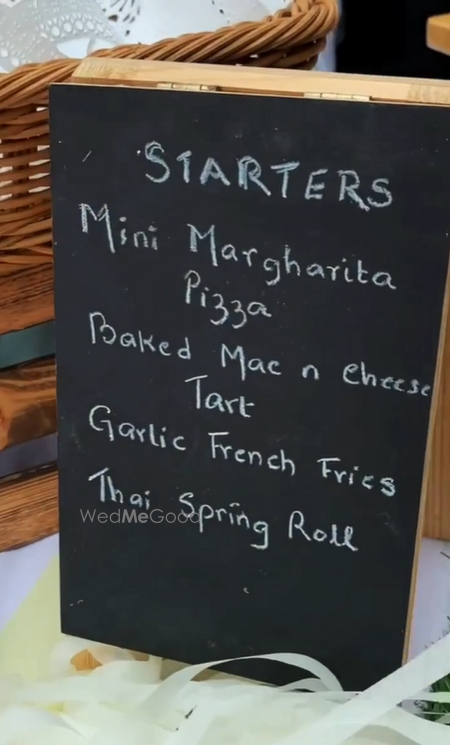 STARTERS
Mini Margharita
Pizza
Baked Mac n cheese
Tart
Garlic French Fries
Thai Spring Roll
WedMeGood